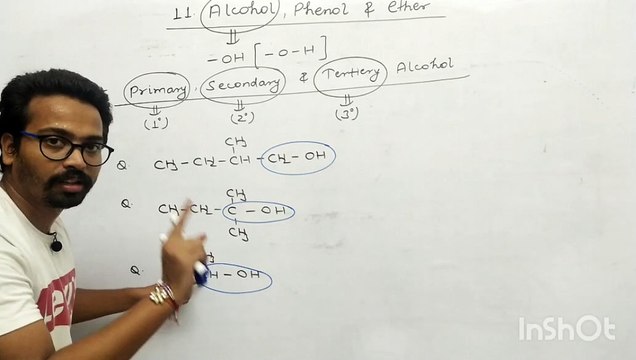 11. Alcohol, Phenol & ether
-OH [-O-H]
Primary, Secondary & Tertiary Alcohol
(1°) (2°) (3°)
CH₃
Q. CH₃-CH₂-CH-CH₂-OH
CH₃
Q. CH₃-CH₂-C-OH
CH₃
Q. H-OH
InShOt